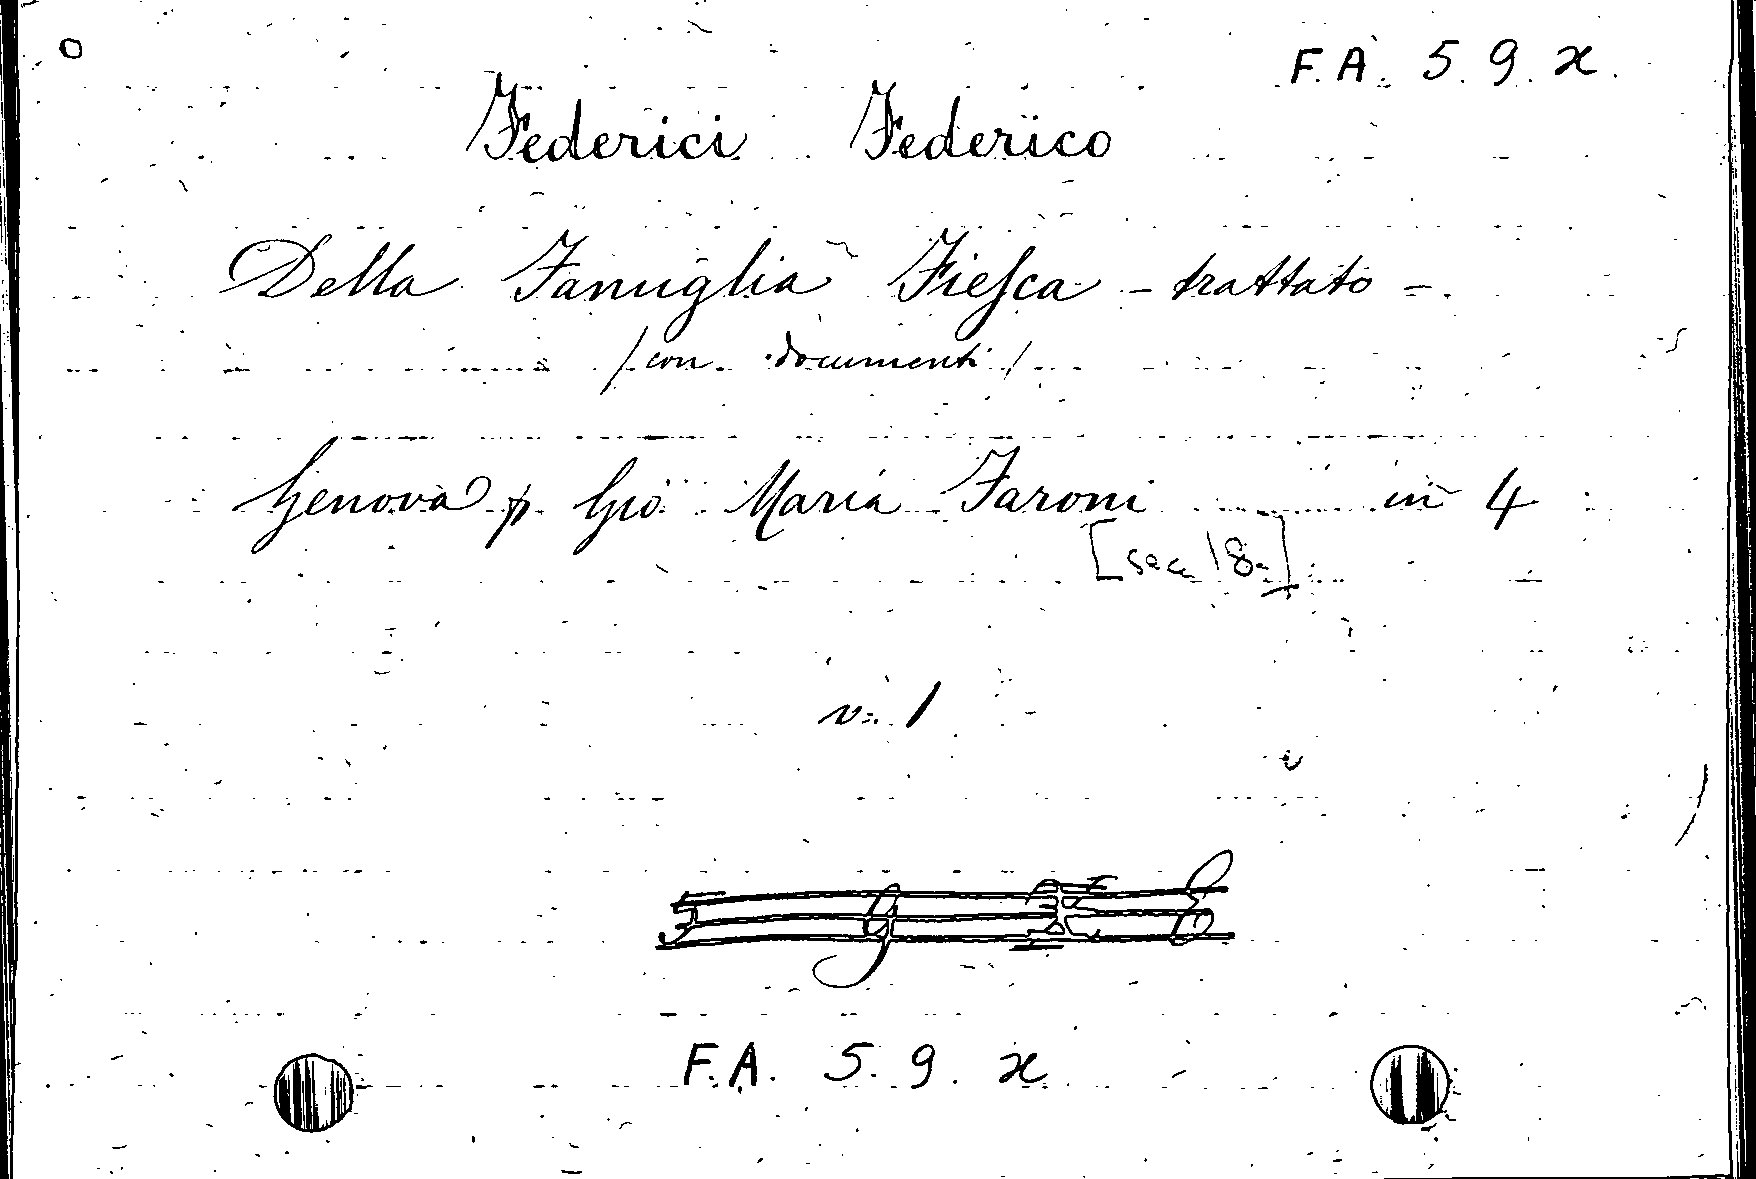 F. A. 5. 9. x.
Federici Federico
Della Famiglia Fiesca - trattato -.
/ con documenti /
Genova p. Gio Maria Faroni in 4
[sec. 18.]
v. 1
F. A. 5. 9. x